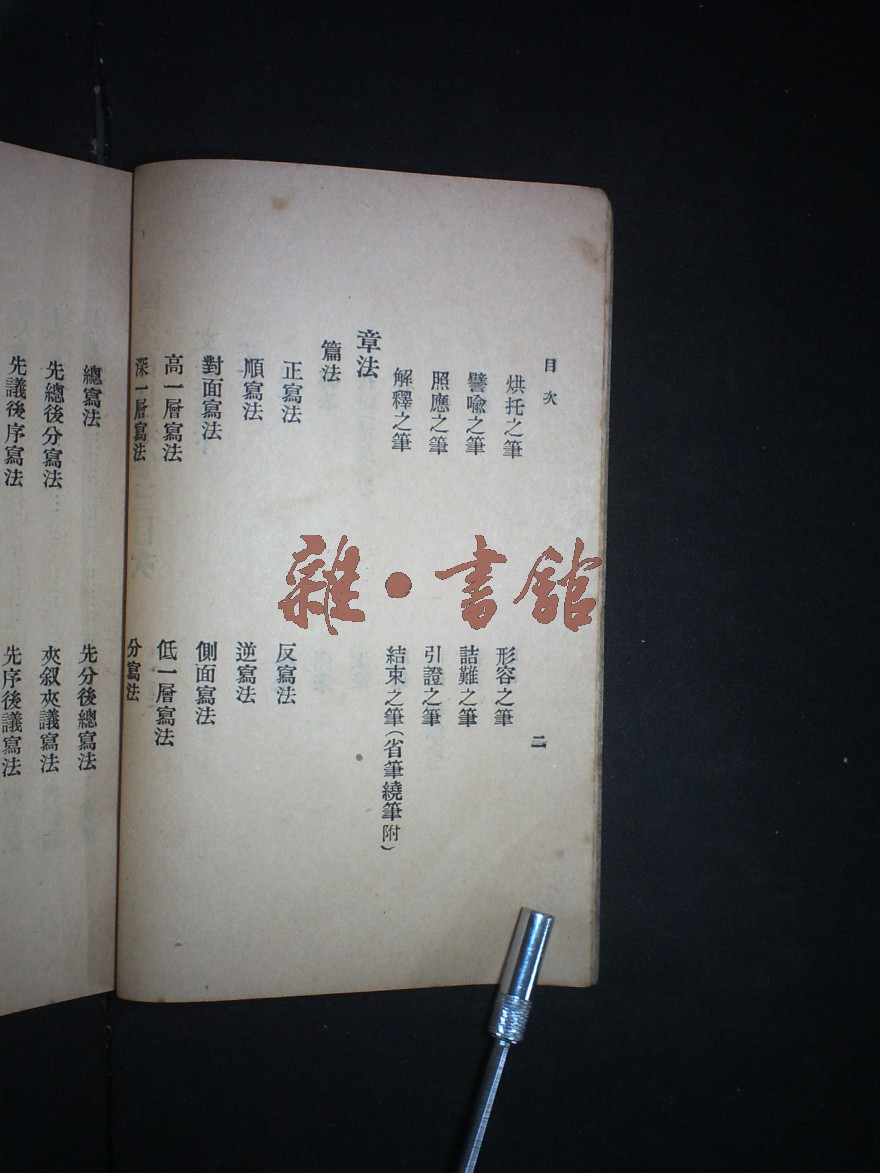 目次
二
烘托之筆
形容之筆
譬喩之筆
詰難之筆
照應之筆
引證之筆
解釋之筆
結束之筆(省筆繞筆附)
章法
篇法
正寫法
反寫法
順寫法
逆寫法
對面寫法
側面寫法
高一層寫法
低一層寫法
深一層寫法
分寫法
總寫法
先分後總寫法
先總後分寫法
夾叙夾議寫法
先議後序寫法
先序後議寫法
雜·書館